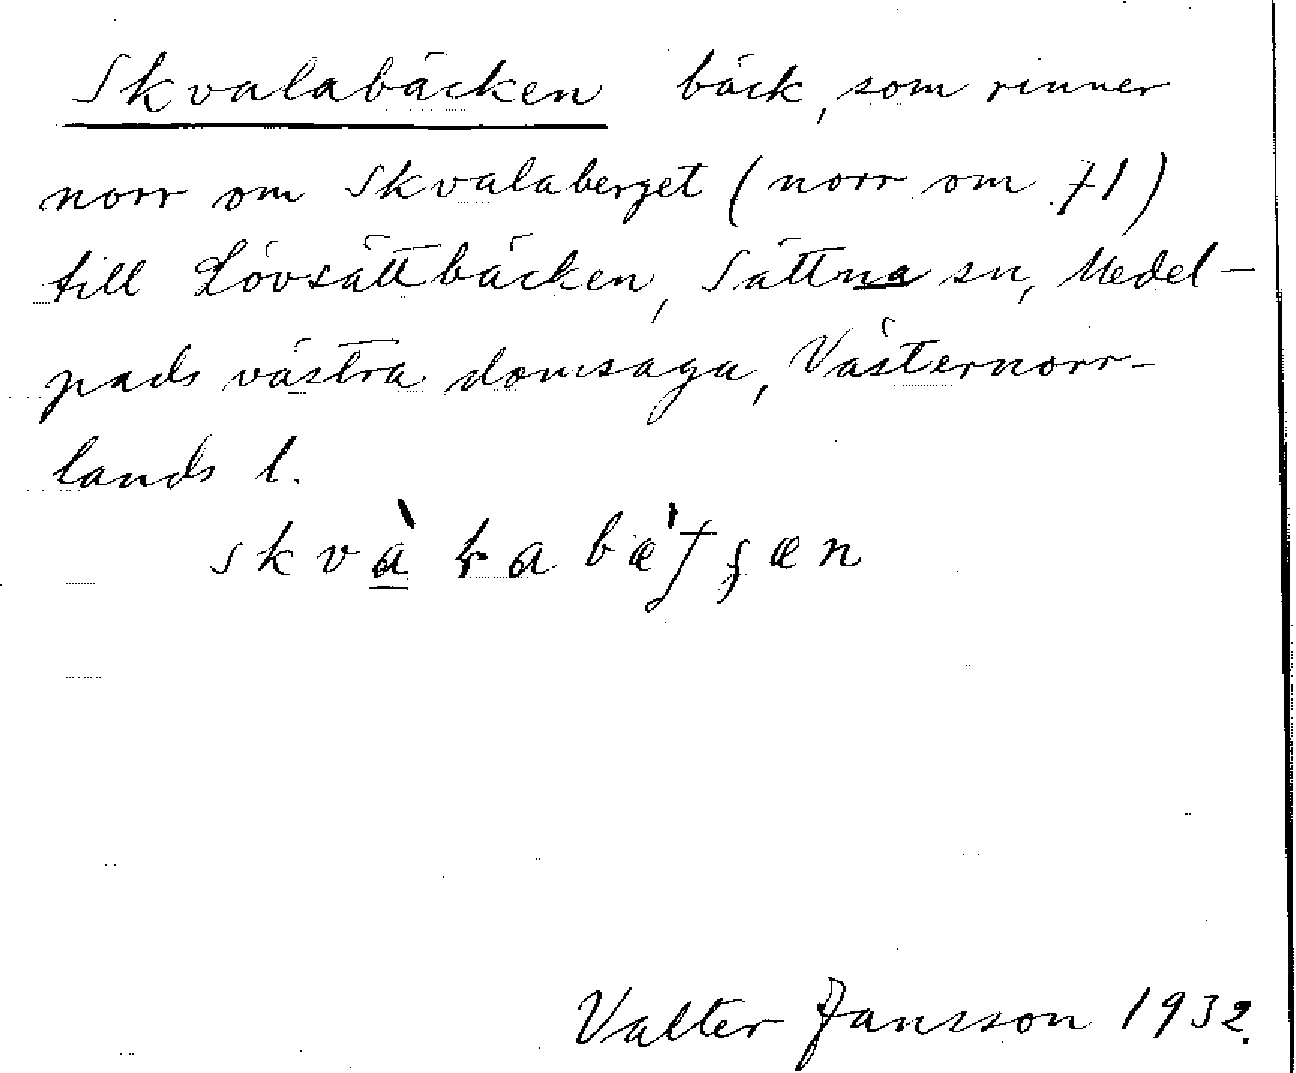 Skvalabäcken bäck, som rinner
norr om Skvalaberget (norr om f1)
till Lövsättbäcken, Sättna sn, Medel-
pads västra domsaga, Västernorr-
lands l.
Valter Jansson 1932.